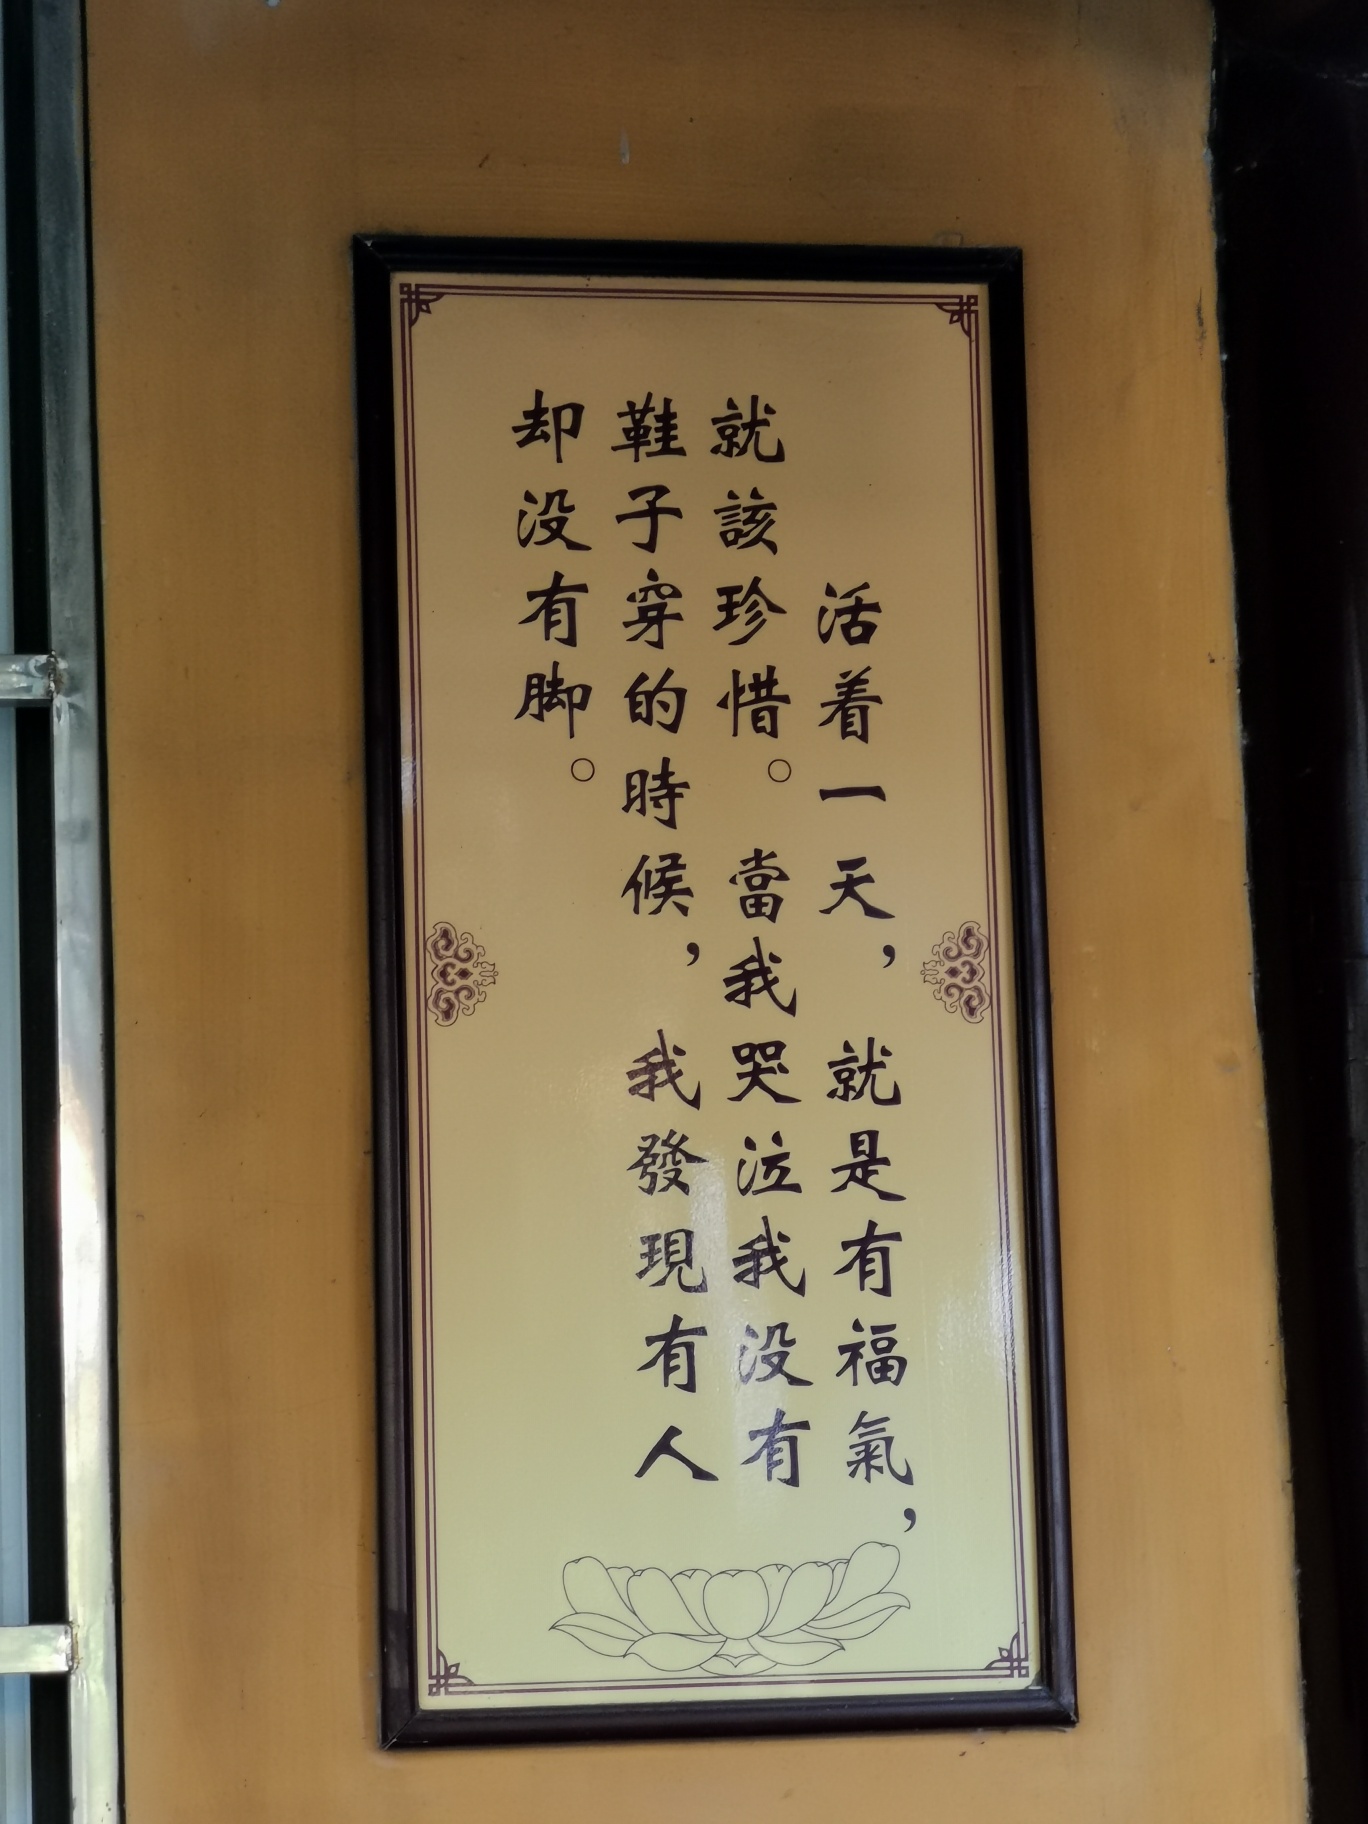 活着一天，就是有福氣，
就該珍惜。當我哭泣我没有
鞋子穿的時候，我發現有人
却没有脚。